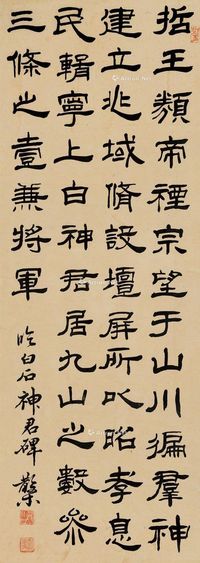 哲王類帝禋宗望于山川徧羣神
建立兆域脩設壇屏所㠯昭孝息
民輯寧上白神君居九山之數參
三條之壹兼將軍
臨白石神君碑